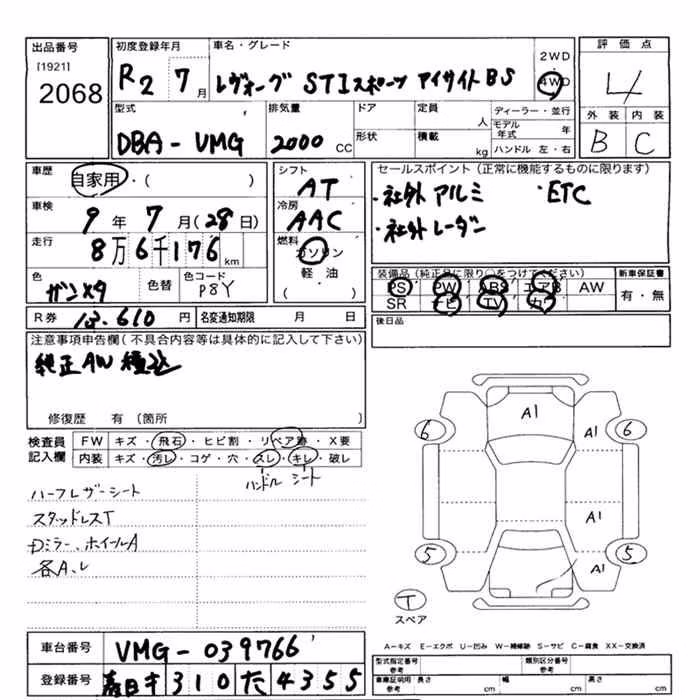 出品番号
[1921]
2068
初度登録年月
R2 7月
車名・グレード
レヴォーグ STIスポーツ アイサイトBS
2WD
4WD
評価点
4
外装 内装
B C
型式
DBA-VMG
排気量
2000 CC
ドア
形状
定員 人
積載 kg
ディーラー・並行
モデル年式 年
ハンドル 左・右
車歴
自家用・( )
車検
9年 7月(28日)
走行
8万6千176km
色
ガンメタ
色替
色コード
P8Y
シフト
AT
冷房
AAC
燃料
ガソリン
軽油
( )
セールスポイント(正常に機能するものに限ります)
・社外アルミ ・ETC
・社外レーダー
装備品(純正品に限り○をつけてください)
PS PW ABS エアB AW
SR ナビ TV カワ
新車保証書
有・無
R券 13,610円
名変通知期限 月 日
後日品
注意事項申告欄(不具合内容等は具体的に記入して下さい)
純正AW積込
修復歴 有(箇所 )
検査員記入欄
FW キズ・飛石・ヒビ割・リペア跡・X要
内装 キズ・汚レ・コゲ・穴・スレ・キレ・破レ
ハンドル シート
ハーフレザーシート
スタッドレスT
Dミラー、ホイールA
各A、レ
A1
6 A1 6
A1
5 A1 5
T
スペア
A-キズ E-エクボ U-凹み W-補修跡 S-サビ C-腐食 XX-交換済
車台番号 VMG-039766
登録番号 春日井 310 た 4355
型式指定番号 参考
類別区分番号 参考
車庫証明用 参考 長さ cm 幅 cm 高さ cm